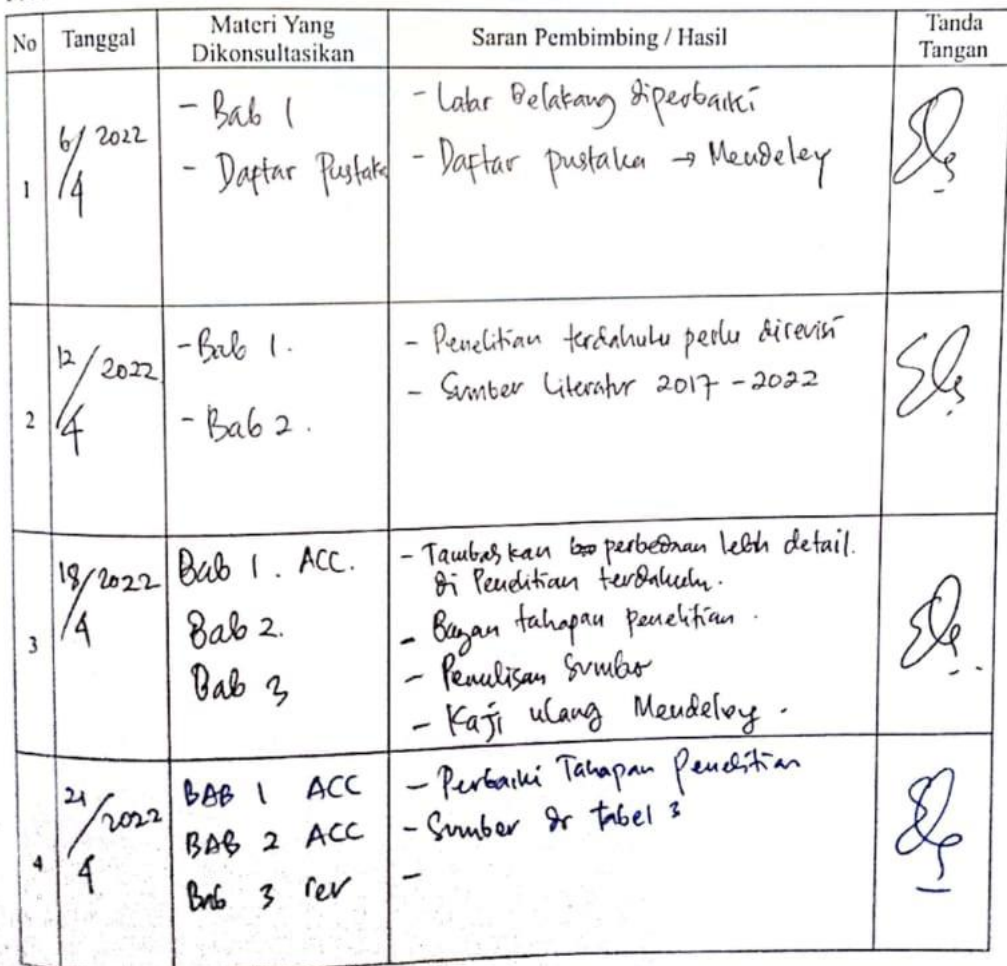 No
Tanggal
Materi Yang
Dikonsultasikan
Saran Pembimbing / Hasil
Tanda
Tangan
1
6/4 2022
- Bab 1
- Daftar Pustaka
- Latar Belakang diperbaiki
- Daftar pustaka → Mendeley
2
12/4 2022
- Bab 1.
- Bab 2.
- Penelitian terdahulu perlu direvisi
- Sumber Literatur 2017 - 2022
3
18/4 2022
Bab 1. ACC.
Bab 2.
Bab 3
- Tambahkan perbedaan lebih detail.
di Penelitian terdahulu.
- Bagan tahapan penelitian.
- Penulisan Sumber
- Kaji ulang Mendeley.
4
21/4 2022
BAB 1 ACC
BAB 2 ACC
Bab 3 rev
- Perbaiki Tahapan Penelitian
- Sumber dr tabel 3
-